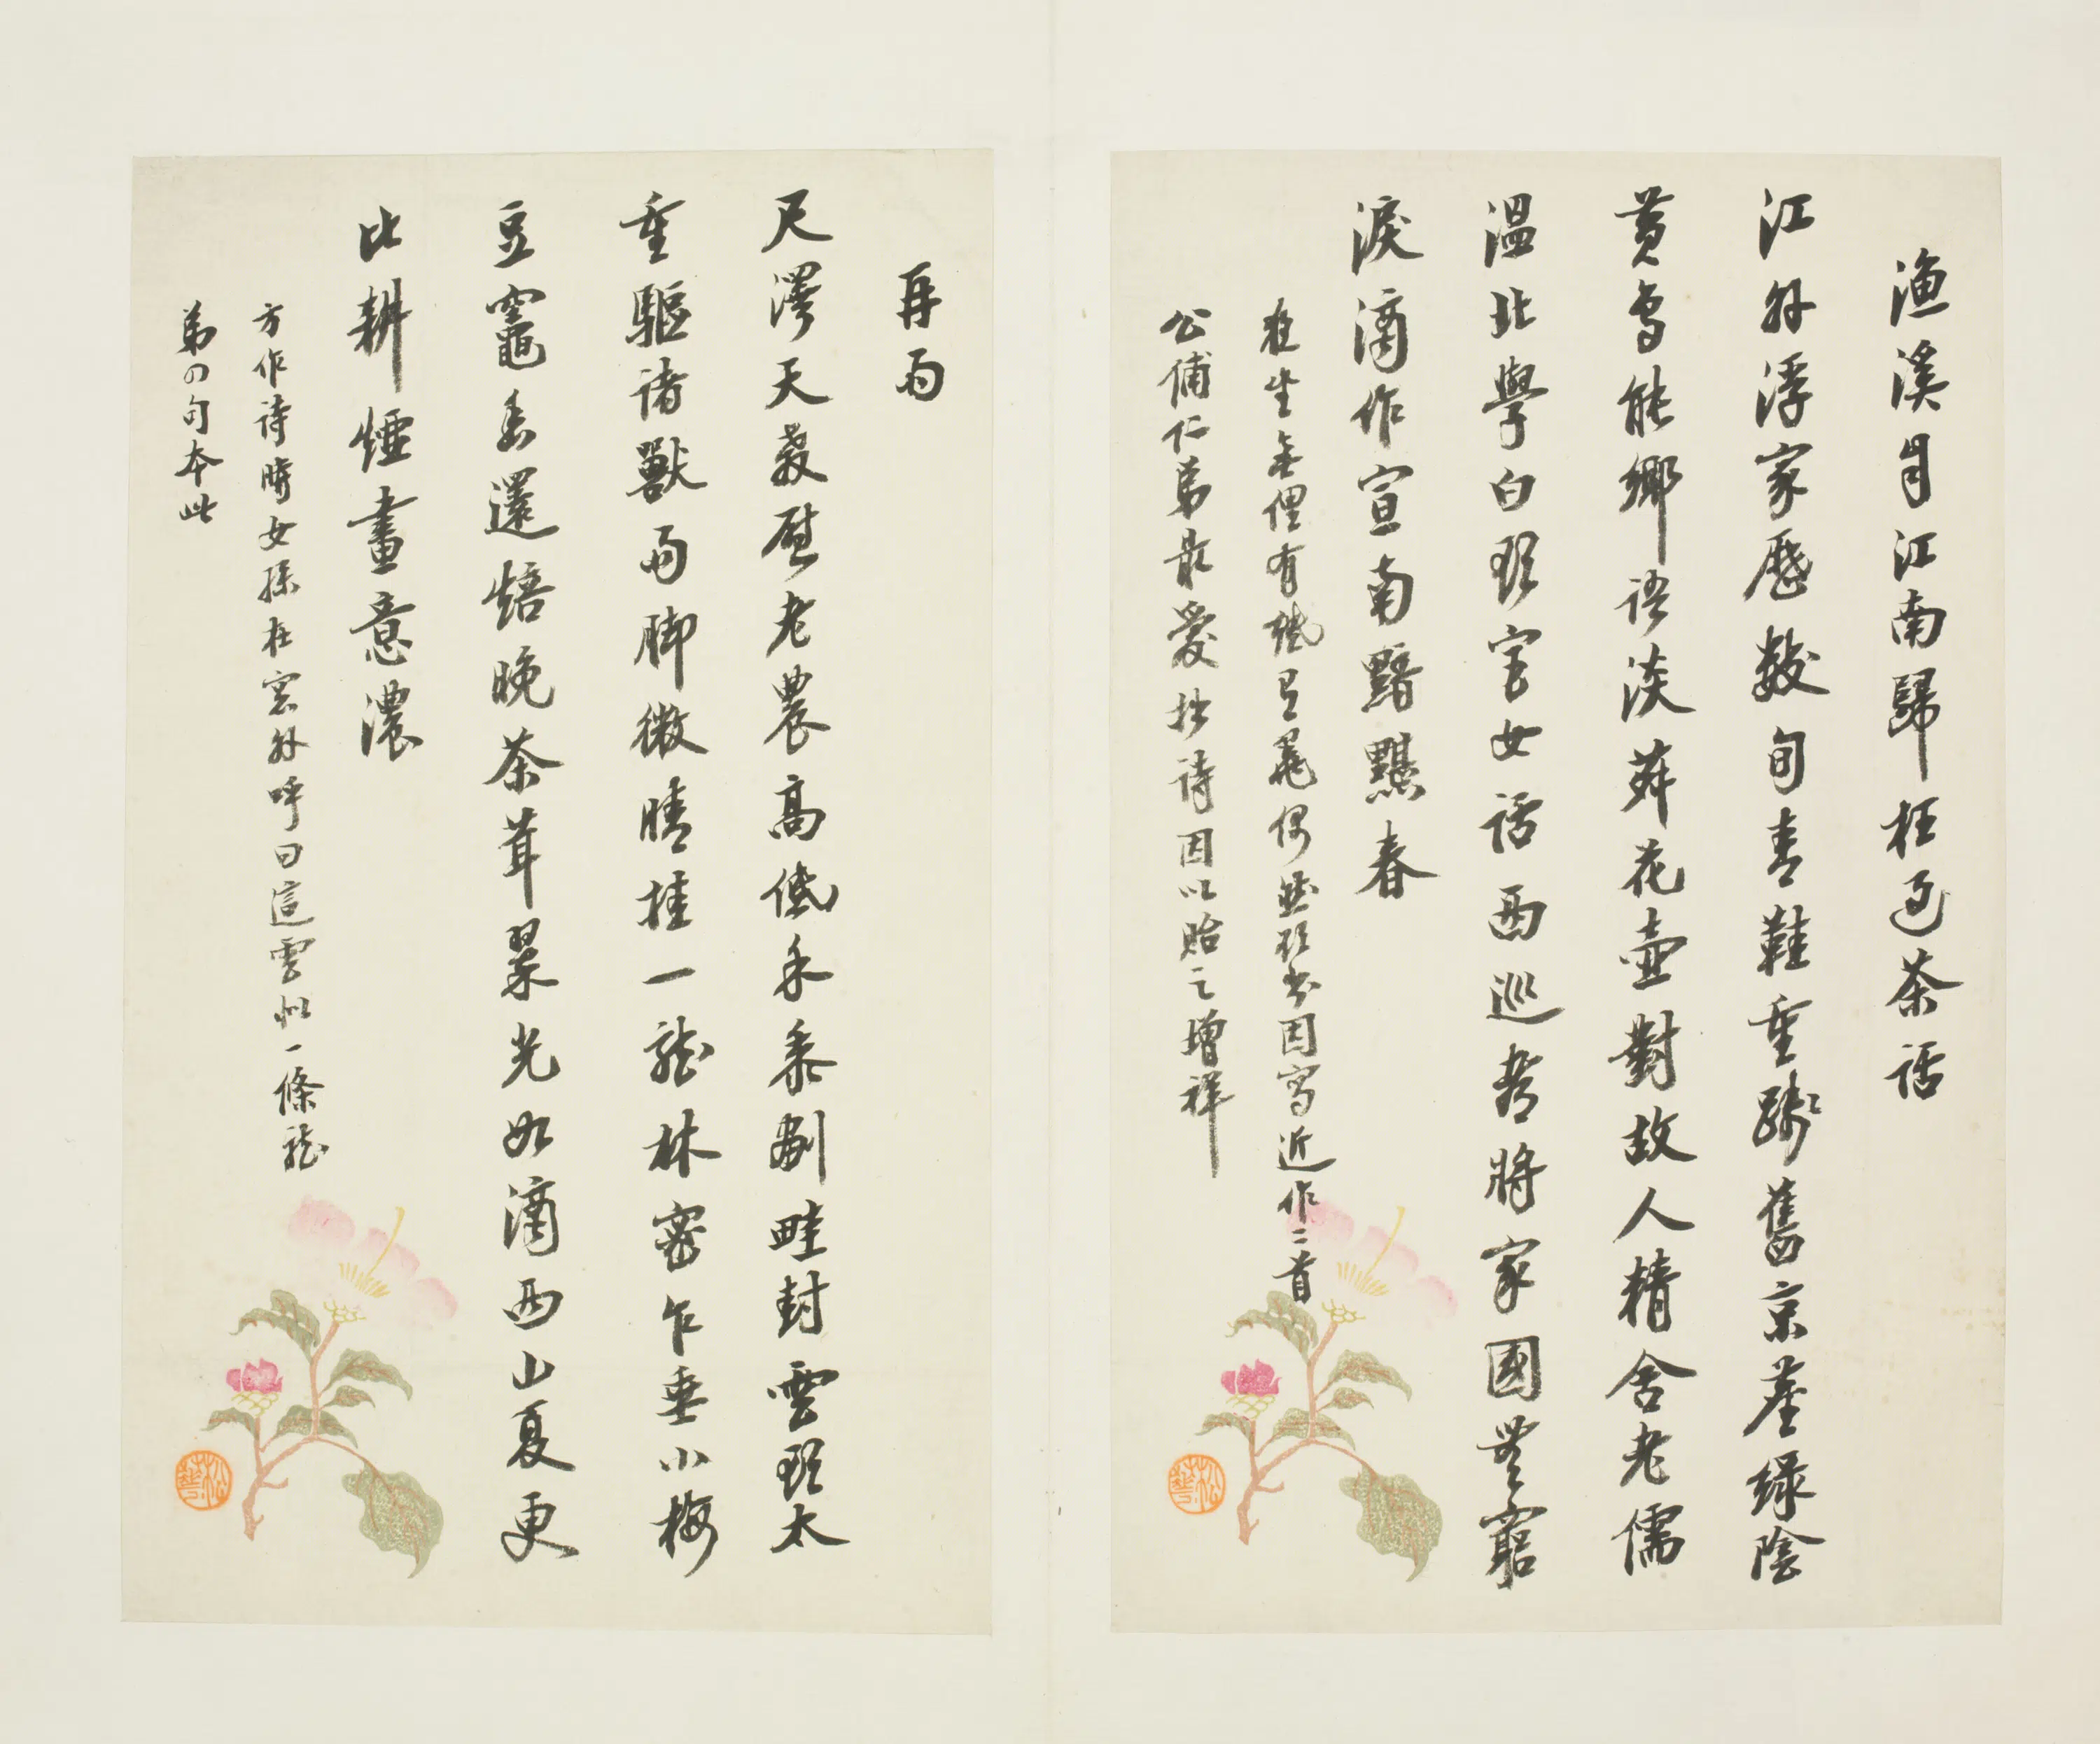 漁溪自江南歸枉過茶話
江外浮家歷數旬青鞋重踏舊京塵綠陰
黃鳥能鄉語淡薜花壺對故人精舍老儒
溫北學白頭宮女話西巡都將家國無窮
淚滴作宣南黯黮春
在生無俚有紙
偶然
因寫近作二首
公俌仁弟最愛拙詩因以貽之增祥
再雨
尺澤天教慰老農高低禾黍劃畦封雲頭太
重驅諸獸雨腳微晴挂一龍林密乍垂小梅
豆竈香還焙晚茶茸翠光如滴西山夏更
比耕煙畫意濃
方作詩時女孫在窗外呼曰這雲似一條龍
弟四句本此